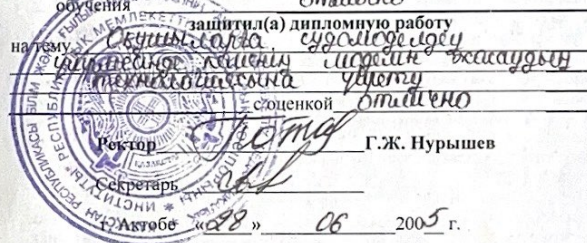 обучения отлично
защитил(а) дипломную работу
на тему Оқушыларға судомоделдеу
үйірмесінде кешенің моделін жасаудың
технологиясына үйрету
с оценкой отлично
Ректор Г.Ж. Нурышев
Секретарь
г. Актобе «28» 06 2005 г.